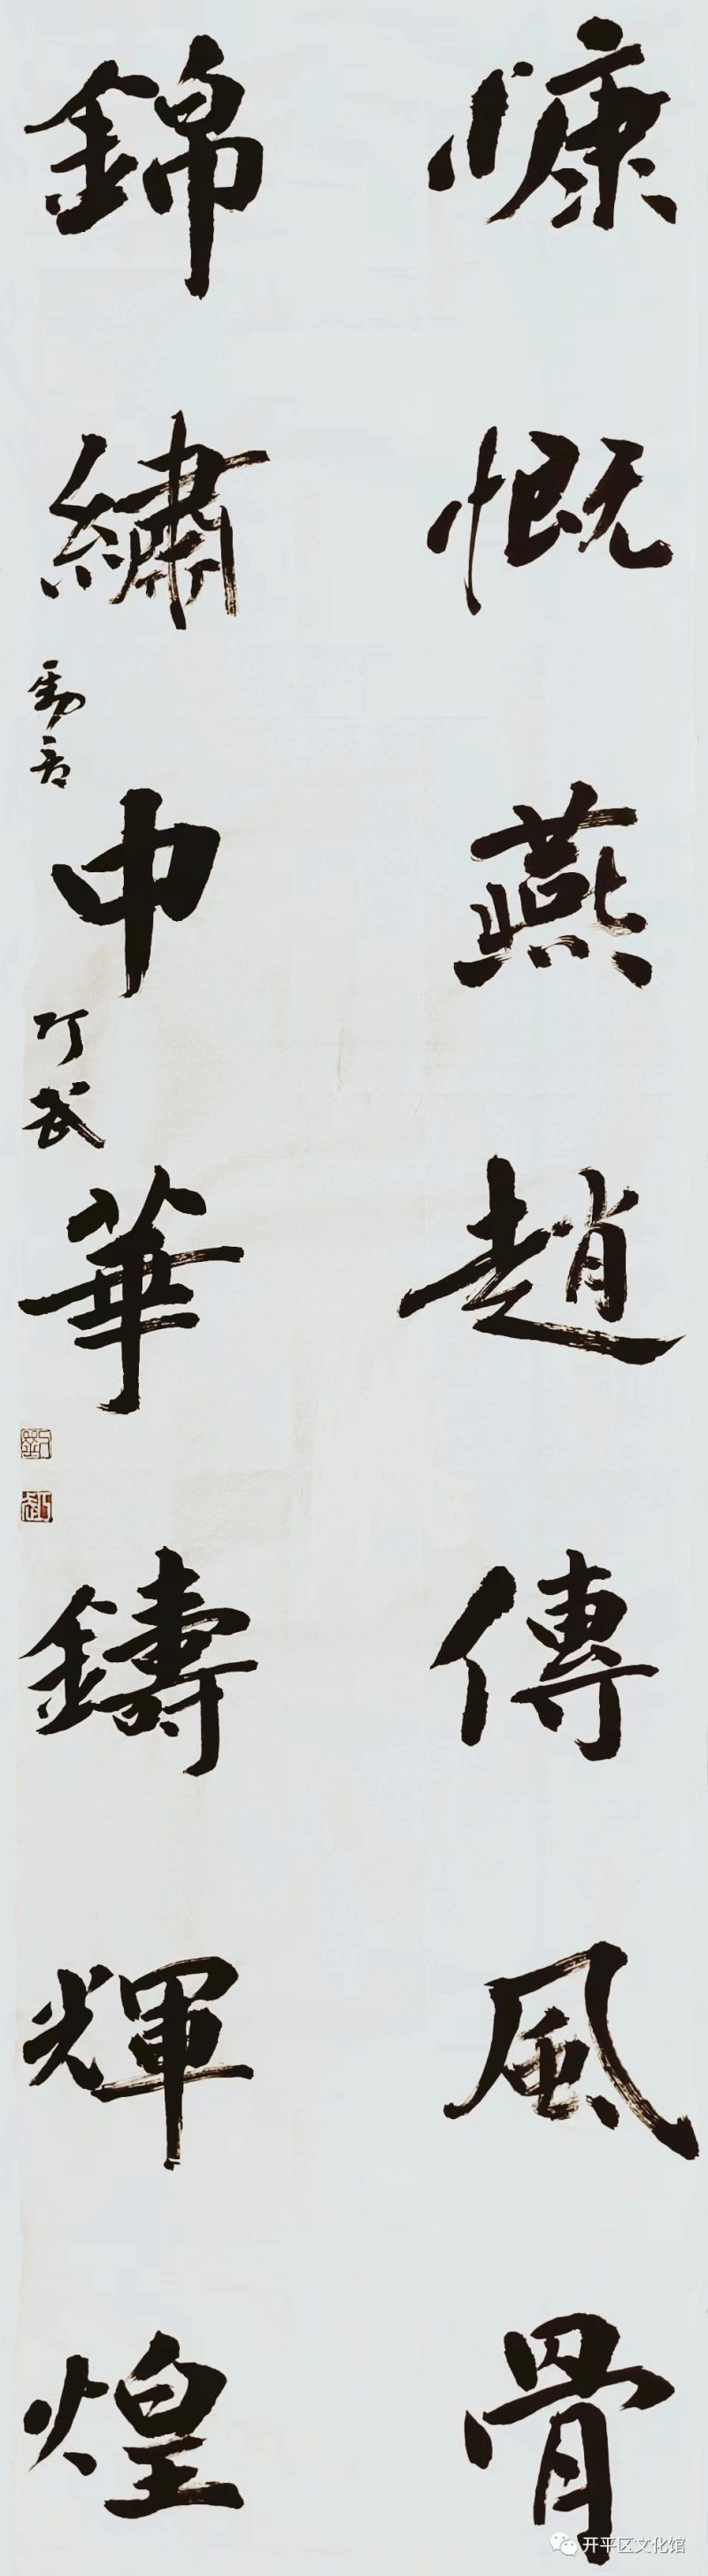 慷慨燕趙傳風骨
錦繡中華鑄輝煌
开平区文化馆